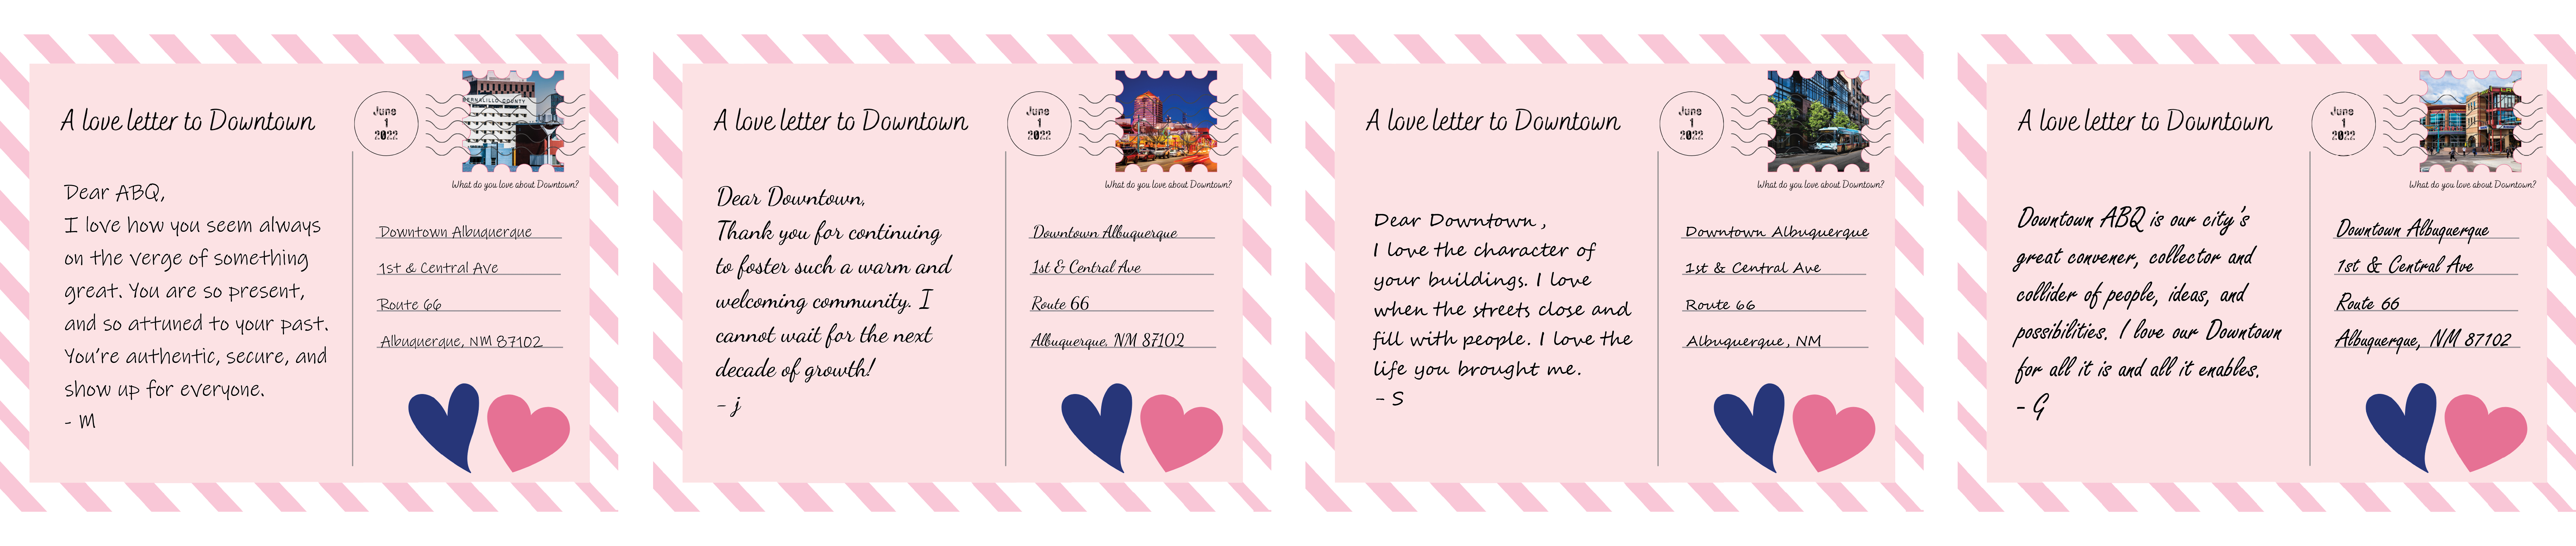 A love letter to Downtown
June
1
2022
BERNALILLO COUNTY
What do you love about Downtown?
Dear ABQ,
I love how you seem always
on the verge of something
great. You are so present,
and so attuned to your past.
You're authentic, secure, and
show up for everyone.
- M
Downtown Albuquerque
1st & Central Ave
Route 66
Albuquerque, NM 87102
A love letter to Downtown
June
1
2022
What do you love about Downtown?
Dear Downtown,
Thank you for continuing
to foster such a warm and
welcoming community. I
cannot wait for the next
decade of growth!
- j
Downtown Albuquerque
1st & Central Ave
Route 66
Albuquerque, NM 87102
A love letter to Downtown
June
1
2022
What do you love about Downtown?
Dear Downtown,
I love the character of
your buildings. I love
when the streets close and
fill with people. I love the
life you brought me.
- S
Downtown Albuquerque
1st & Central Ave
Route 66
Albuquerque, NM
A love letter to Downtown
June
1
2022
What do you love about Downtown?
Downtown ABQ is our city's
great convener, collector and
collider of people, ideas, and
possibilities. I love our Downtown
for all it is and all it enables.
- G
Downtown Albuquerque
1st & Central Ave
Route 66
Albuquerque, NM 87102